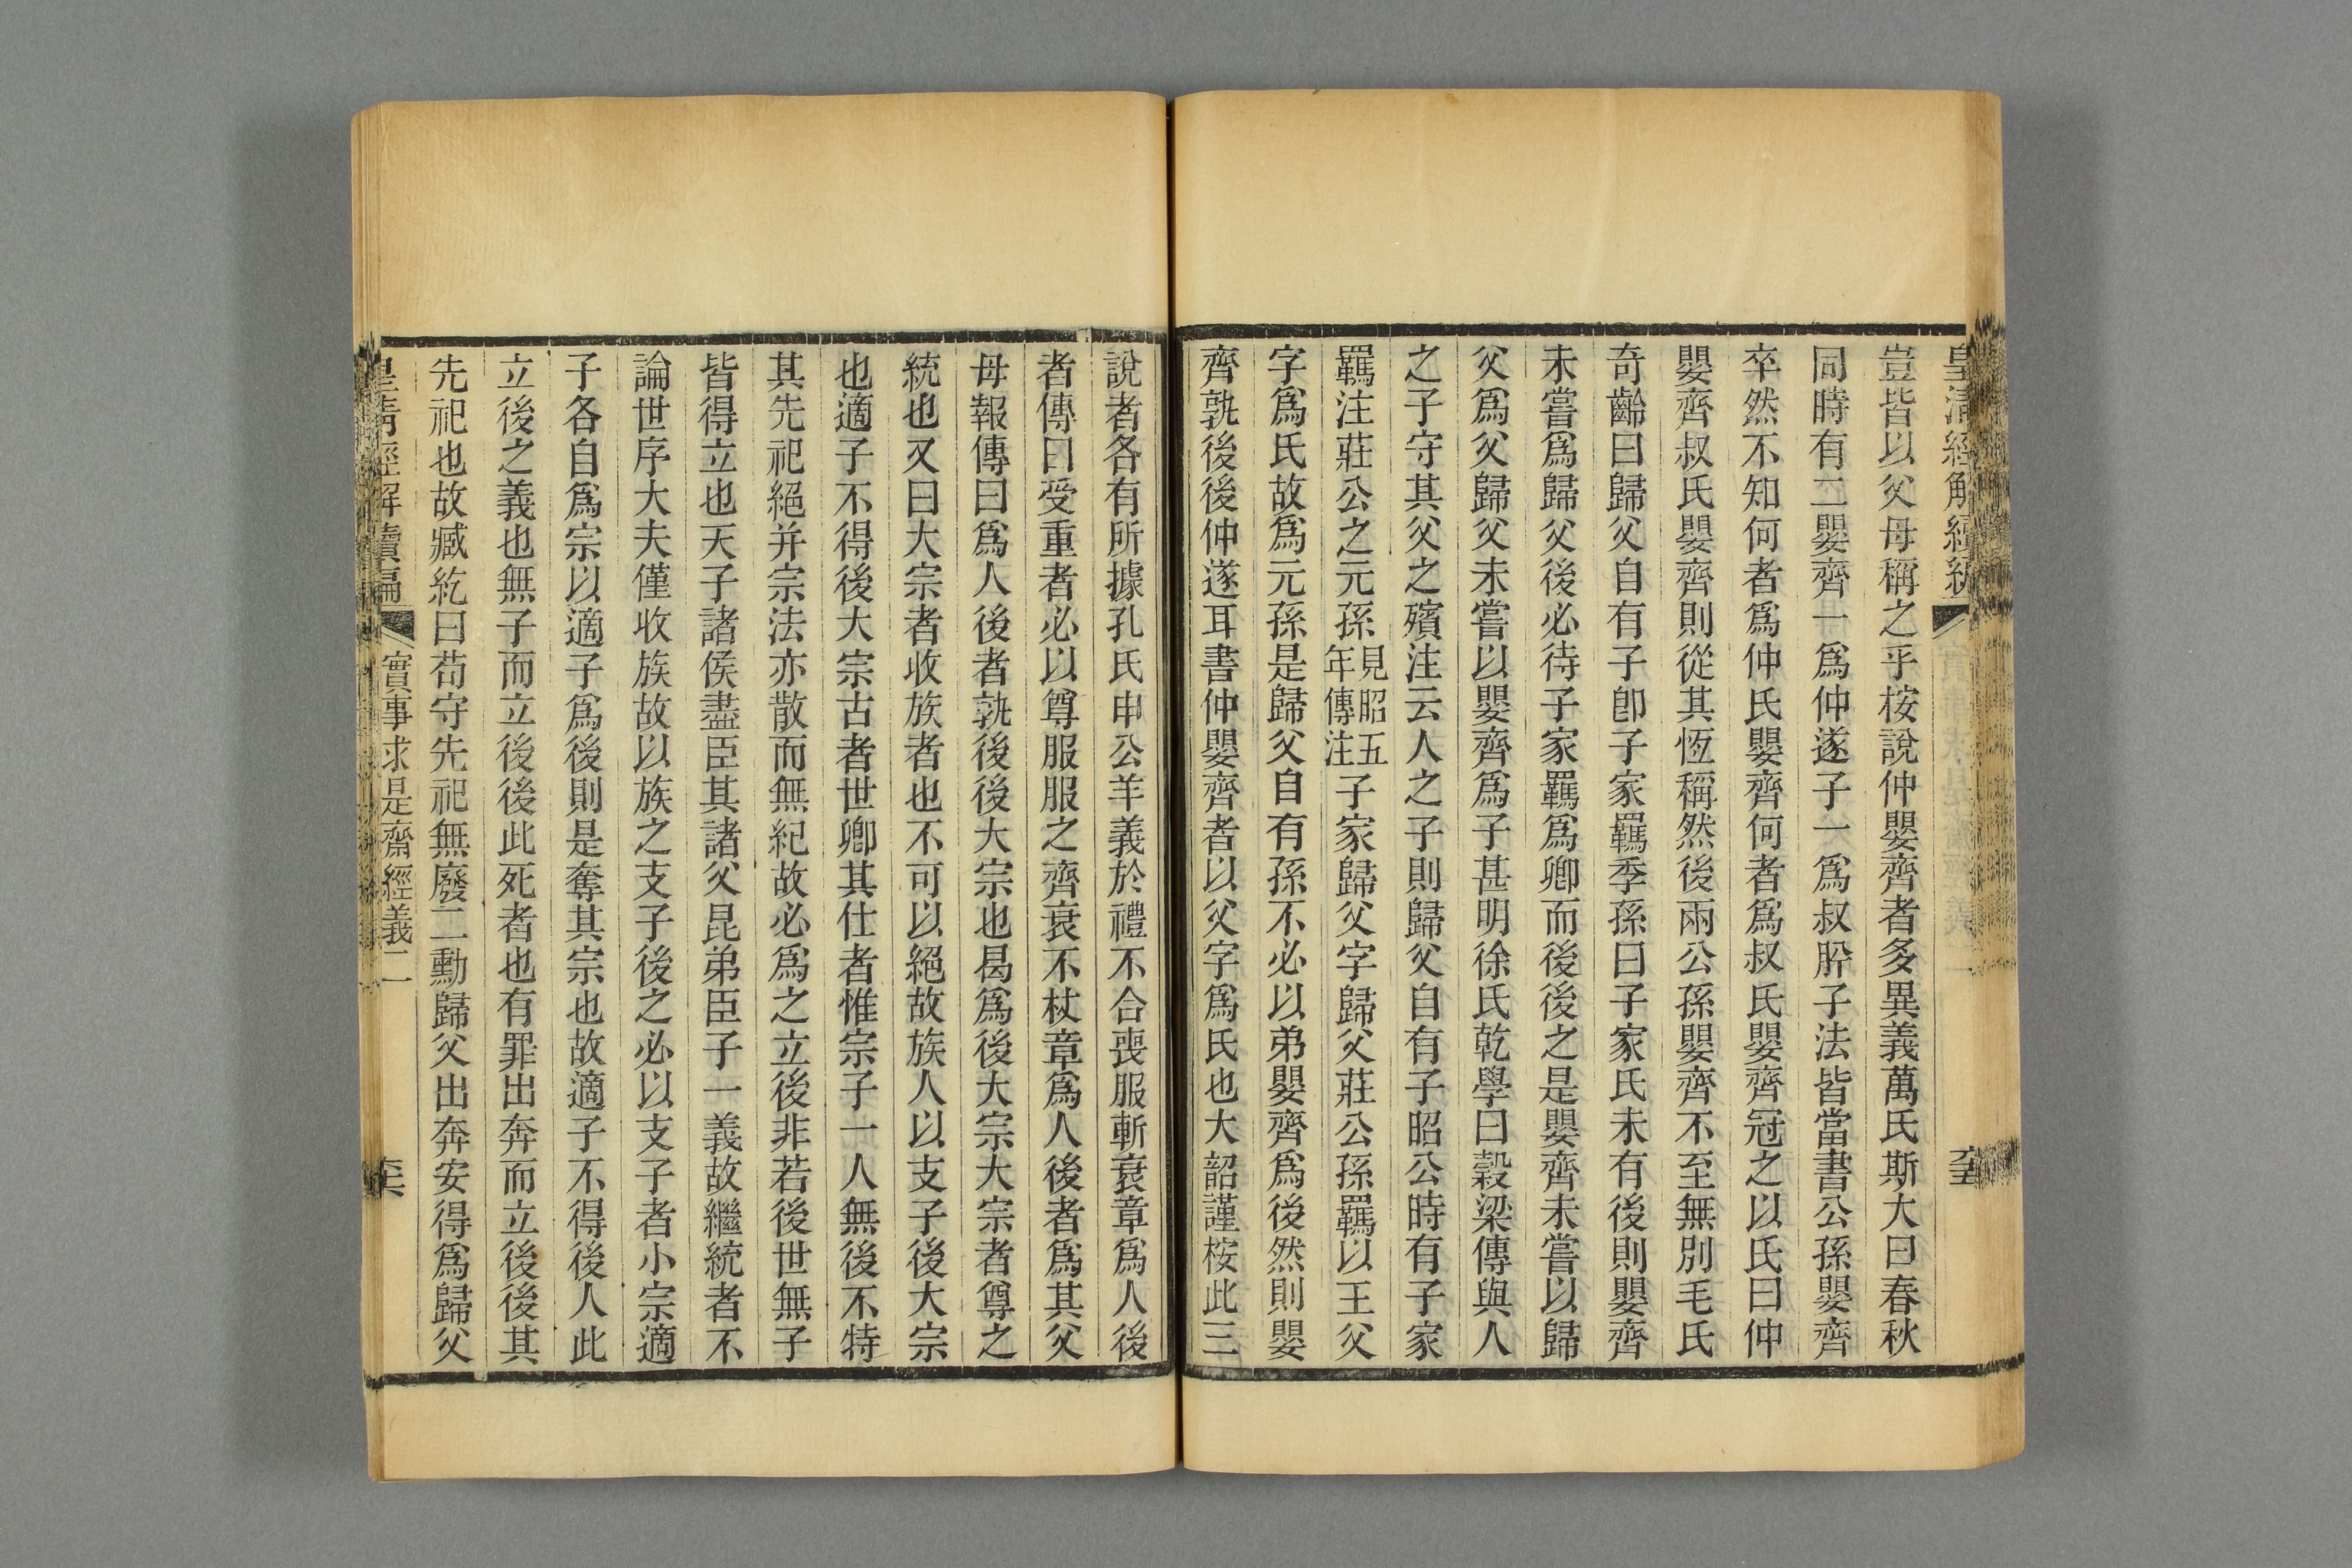 豈皆以父母稱之乎桉說仲嬰齊者多異義萬氏斯大曰春秋
同時有二嬰齊一爲仲遂子一爲叔肸子法皆當書公孫嬰齊
卒然不知何者爲仲氏嬰齊何者爲叔氏嬰齊冠之以氏曰仲
嬰齊叔氏嬰齊則從其恆稱然後兩公孫嬰齊不至無別毛氏
奇齡曰歸父自有子卽子家羈季孫曰子家氏未有後則嬰齊
未嘗爲歸父後必待子家羈爲卿而後後之是嬰齊未嘗以歸
父爲父歸父未嘗以嬰齊爲子甚明徐氏乾學曰穀梁傳與人
之子守其父之殯注云人之子則歸父自有子昭公時有子家
羈注莊公之元孫見昭五年傳注子家歸父字歸父莊公孫羈以王父
字爲氏故爲元孫是歸父自有孫不必以弟嬰齊爲後然則嬰
齊孰後後仲遂耳書仲嬰齊者以父字爲氏也大韶謹桉此三
說者各有所據孔氏申公羊義於禮不合喪服斬衰章爲人後
者傳曰受重者必以尊服服之齊衰不杖章爲人後者爲其父
母報傳曰爲人後者孰後後大宗也曷爲後大宗大宗者尊之
統也又曰大宗者收族者也不可以絕故族人以支子後大宗
也適子不得後大宗古者世卿其仕者惟宗子一人無後不特
其先祀絕并宗法亦散而無紀故必爲之立後非若後世無子
皆得立也天子諸侯盡臣其諸父昆弟臣子一義故繼統者不
論世序大夫僅收族故以族之支子後之必以支子者小宗適
子各自爲宗以適子爲後則是奪其宗也故適子不得後人此
立後之義也無子而立後後此死者也有罪出奔而立後後其
先祀也故臧紇曰苟守先祀無廢二勳歸父出奔安得爲歸父
皇清經解續編 實事求是齋經義二